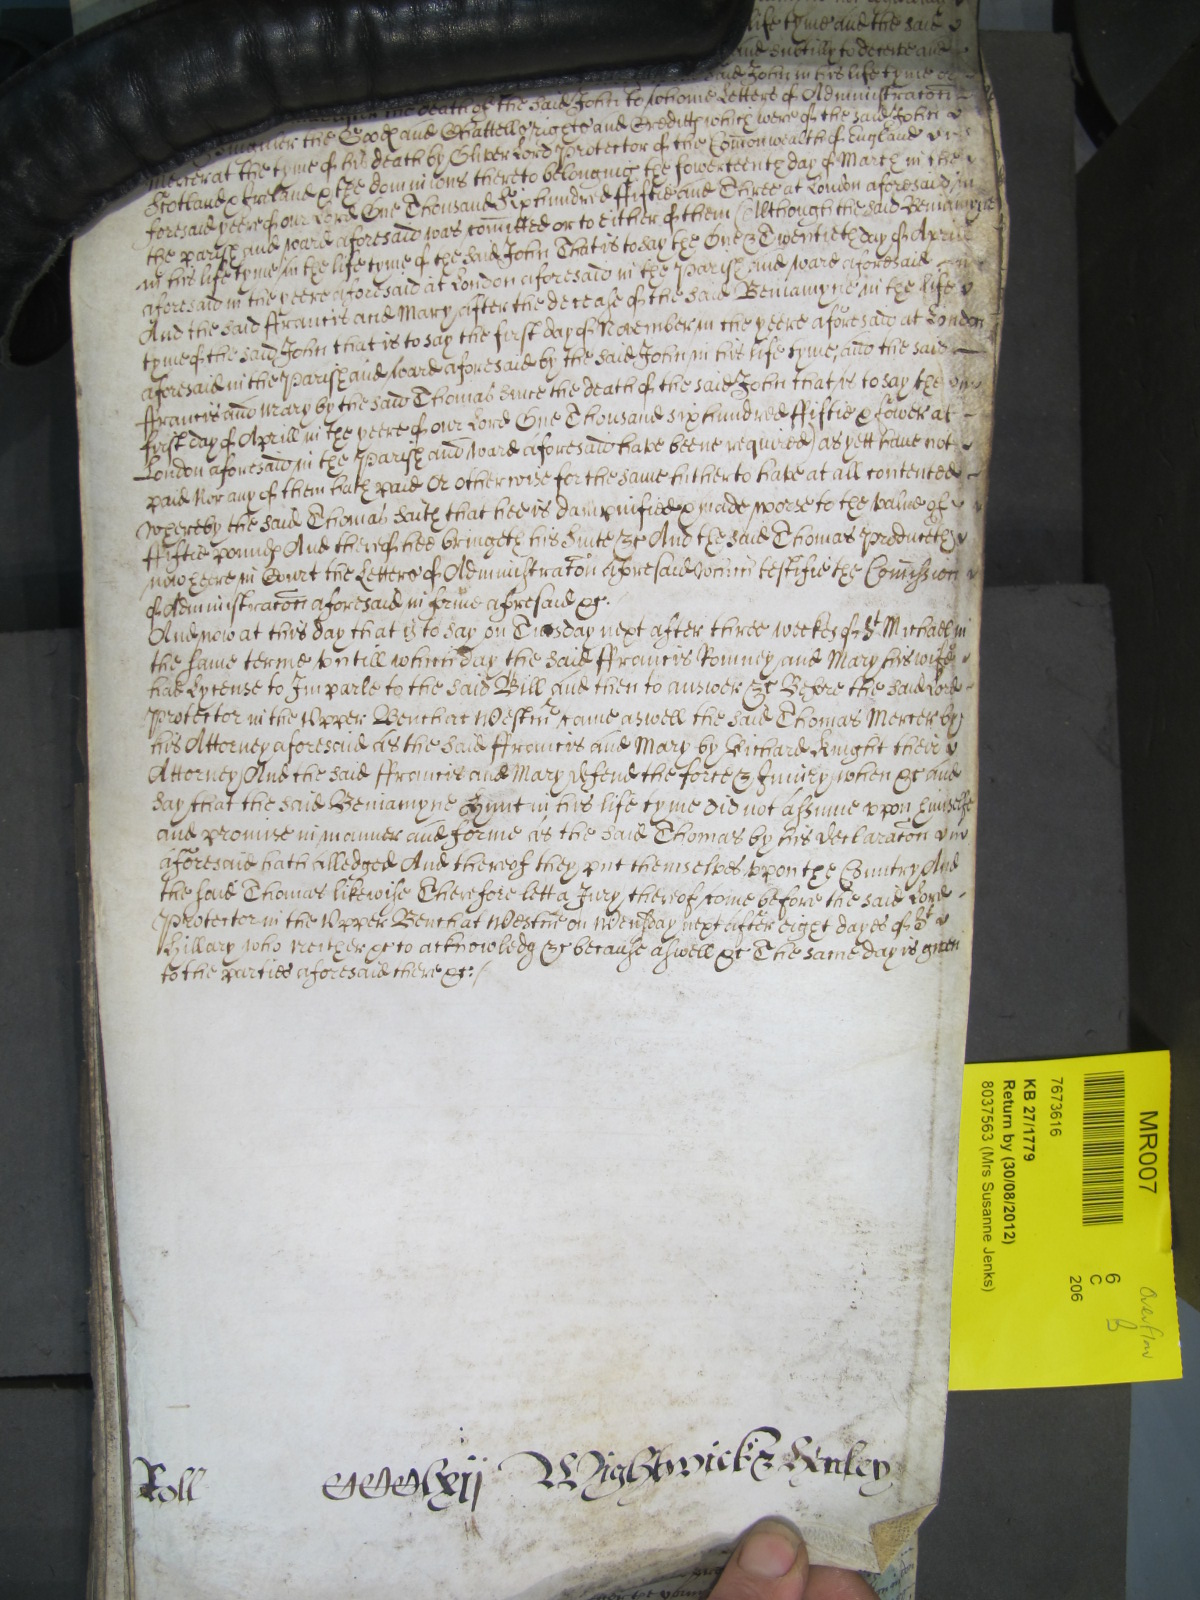 life tyme and the said
and subtilly to deceive and
said John in his life tyme or
the death of the said John to whome Letters of Administracon
the Goods and Chattells rights and Creditts which were of the said John
Mercer at the tyme of his death by Oliver Lord Protector of the Comonwealth of England
Scotland & Ireland & the dominions thereto belonging the fowerteenth day of March in the
foresaid yeere of our Lord One Thousand Six hundred ffiftie and Three at London aforesaid in
the parish and ward aforesaid was comitted or to either of them (Although the said Beniamyne
in his life tyme in the life tyme of the said John That is to say the One & Twentieth day of Aprill
aforesaid in the yeere aforesaid at London aforesaid in the Parish and ward aforesaid
And the said ffrancis and Mary after the decease of the said Beniamyne in the life
tyme of the said John that is to say the first day of November in the yeere aforesaid at London
aforesaid in the Parish and ward aforesaid by the said John in his life tyme, and the said
ffrancis and Mary by the said Thomas since the death of the said John that is to say the
first day of Aprill in the yeere of our Lord One Thousand six hundred ffiftie & fower at
London aforesaid in the Parish and ward aforesaid have beene required) as yett have not
paid Nor any of them hath paid Or otherwise for the same hitherto have at all contented
Whereby the said Thomas saith that hee is dampnified & made worse to the value of
ffiftie pounds And thereof hee bringeth his Suite &c And the said Thomas Produceth
now here in Court the Letters of Administracon aforesaid which testifie the Comission
of Administracon aforesaid in forme aforesaid &c.
And now at this day that is to say on Tuesday next after three weekes of St Michael in
the same terme untill which day the said ffrancis Romney and Mary his wife
had Lycense to Imparle to the said Bill and then to answer &c Before the said Lord
Protector in the Upper Bench at Westmr came aswell the said Thomas Mercer by
his Attorney aforesaid as the said ffrancis and Mary by Richard Knight their
Attorney And the said ffrancis and Mary defend the force & Iniury when &c and
say that the said Beniamyne Hunt in his life tyme did not assume upon himselfe
and promise in manner and forme as the said Thomas by his declaracon
aforesaid hath alledged And thereof they put themselves upon the Country And
the said Thomas likewise Therefore lett a Jury thereof come before the said Lord
Protector in the Upper Bench at Westmr on Wensday next after eight dayes of St
Hillary who neither &c to acknowledg &c because aswell &c The same day is given
to the parties aforesaid there &c:/
Roll CCCClxij Wightwick & Henley
MR007
7673616
KB 27/1779
Return by (30/08/2012)
8037563 (Mrs Susanne Jenks)
6
C
206
Overflow